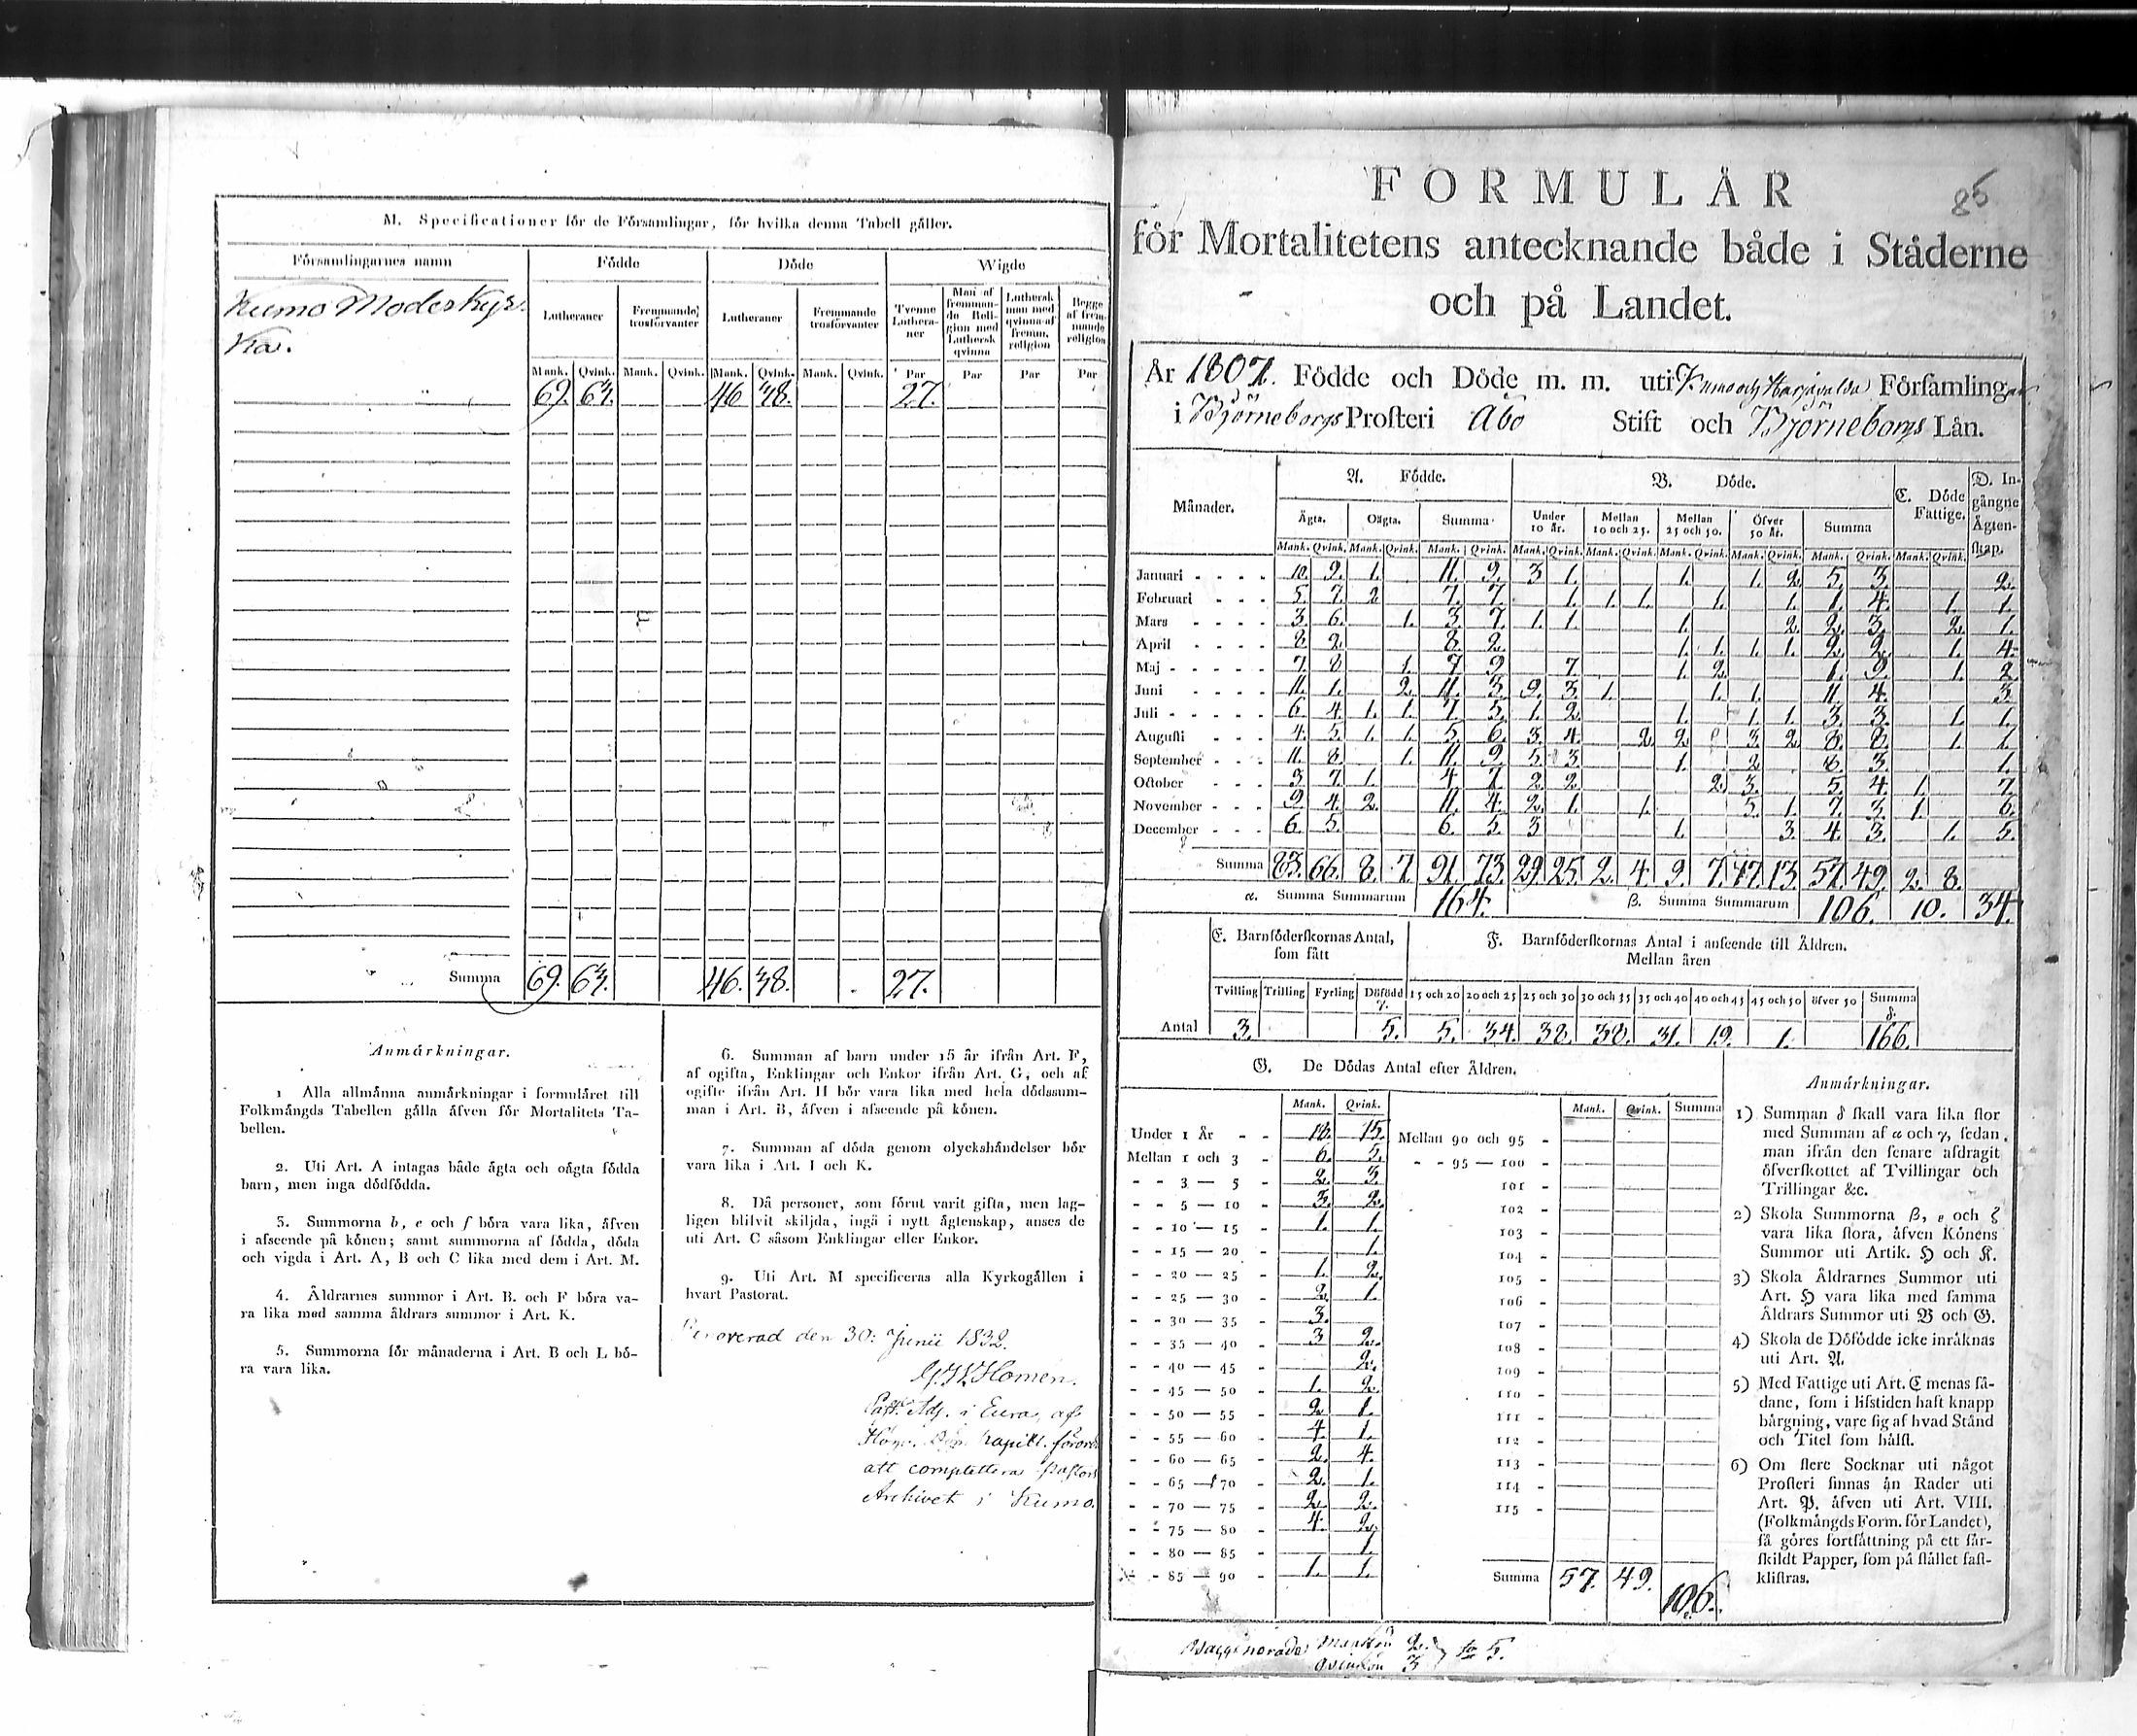 M. Specificationer för de Församlingar, för hvilka denna Tabell gäller.
Församlingarnes namn Födde Döde Wigde
Lutheraner Fremmande trosförvanter Lutheraner Fremmande trosförvanter Tvenne Lutheraner Man af fremmande Religion med Luthersk qvinna Luthersk man med qvinna af fremm. religion Begge af fremmande religion
Mank. Qvink. Mank. Qvink. Mank. Qvink. Mank. Qvink. Par Par Par Par
Kumo Moderkyr-
ka.
69. 64. 46 48. 27.
Summa 69. 64. 46. 48. 27.
Anmärkningar.
1 Alla allmänna anmärkningar i formuläret till
Folkmängds Tabellen gälla äfven för Mortalitets Ta-
bellen.
2. Uti Art. A intagas både ägta och oägta födda
barn, men inga dödfödda.
3. Summorna b, e och f böra vara lika, äfven
i afseende på könen; samt summorna af födda, döda
och vigda i Art. A, B och C lika med dem i Art. M.
4. Äldrarnes summor i Art. B. och F böra va-
ra lika med samma äldrars summor i Art. K.
5. Summorna för månaderna i Art. B och L bö-
ra vara lika.
6. Summan af barn under 15 år ifrån Art. F,
af ogifta, Enklingar och Enkor ifrån Art. G, och af
ogifte ifrån Art. H bör vara lika med hela dödssum-
man i Art. B, äfven i afseende på könen.
7. Summan af döda genom olyckshändelser bör
vara lika i Art. I och K.
8. Då personer, som förut varit gifta, men lag-
ligen blifvit skiljda, ingå i nytt ägtenskap, anses de
uti Art. C såsom Enklingar eller Enkor.
9. Uti Art. M specificeras alla Kyrkogällen i
hvart Pastorat.
den 30: Junii 1832.
Homén.
Past. Adj. i Eura, af
att completteras Pastors
Archivet i Kumo.
85
FORMULÄR
för Mortalitetens antecknande både i Städerne
och på Landet.
År 1807. Födde och Döde m. m. uti Kumo och Harjavalda Församlingar
i Björneborgs Prosteri Åbo Stift och Björneborgs Län.
Månader. A. Födde. B. Döde. C. Döde Fattige. D. Ingångne Ägtenskap.
Ägta. Oägta. Summa Under 10 år. Mellan 10 och 25. Mellan 25 och 50. Öfver 50 år. Summa
Mank. Qvink. Mank. Qvink. Mank. Qvink. Mank. Qvink. Mank. Qvink. Mank. Qvink. Mank. Qvink. Mank. Qvink. Mank. Qvink.
Januari 10. 9. 1. 11. 9. 3 1. 1. 1. 2. 5. 3. 2.
Februari 5. 7. 2 7. 7. 1. 1. 1. 1. 1. 1. 4. 1. 1.
Mars 3. 6. 1. 3. 7. 1. 1. 1. 2. 2. 3. 2. 1.
April 8 2. 8. 2. 1. 1. 1. 1. 2. 2. 1. 4.
Maj 7. 8 1. 7 9 7. 1. 2. 1. 9. 1. 2.
Juni 11. 1. 2. 11. 3. 9. 3 1. 1. 1. 11. 4. 3.
Juli 6. 4. 1. 1. 7. 5. 1. 2. 1. 1. 1. 3. 3. 1. 1.
Augusti 4. 5. 1. 1. 5. 6. 3. 4. 2. 2. 3. 2. 8. 8. 1. 1.
September 11. 8. 1. 11. 9 5 3. 1. 2. 8. 3. 1.
October 3. 7. 1. 4 7. 2. 2. 2. 3. 5. 4. 1. 7.
November 9. 4. 2. 11. 4. 2. 1. 1. 5. 1. 7. 3. 1. 6.
December 6. 5. 6. 5. 3 1. 3. 4. 3. 1. 5.
Summa 83. 66. 8. 7. 91. 73. 29. 25. 2. 4. 9. 7. 17. 13. 57. 49. 2. 8.
α. Summa Summarum 164. β. Summa Summarum 106. 10. 34.
E. Barnföderskornas Antal, som fått
F. Barnföderskornas Antal i anseende till Äldren.
Mellan åren
Tvilling Trilling Fyrling Döfödd γ. 15 och 20 20 och 25 25 och 30 30 och 35 35 och 40 40 och 45 45 och 50 öfver 50 Summa δ.
Antal 3. 5. 5. 34. 38. 38. 31. 19. 1. 166.
G. De Dödas Antal efter Äldren.
Mank. Qvink. Mank. Qvink. Summa
Under 1 År 18. 15.
Mellan 1 och 3 6. 5.
3 — 5 2. 3.
5 — 10 3. 2.
10 — 15 1. 1.
15 — 20 1.
20 — 25 1. 2.
25 — 30 2. 1.
30 — 35 3.
35 — 40 3 2.
40 — 45 2.
45 — 50 1. 2.
50 — 55 2. 1.
55 — 60 4. 1.
60 — 65 2. 4.
65 — 70 2. 1.
70 — 75 2. 2.
75 — 80 4. 2.
80 — 85 1.
85 — 90 1. 1.
Mellan 90 och 95
95 — 100
101
102
103
104
105
106
107
108
109
110
111
112
113
114
115
Summa 57. 49. 106.
Anmärkningar.
1) Summan δ skall vara lika stor
med Summan af α och γ, sedan
man ifrån den senare afdragit
öfverskottet af Tvillingar och
Trillingar &c.
2) Skola Summorna β, ε och ζ
vara lika stora, äfven Könens
Summor uti Artik. H och K.
3) Skola Äldrarnes Summor uti
Art. H vara lika med samma
Äldrars Summor uti B och G.
4) Skola de Döfödde icke inräknas
uti Art. A.
5) Med Fattige uti Art. C menas så-
dane, som i lifstiden haft knapp
bärgning, vare sig af hvad Stånd
och Titel som hälst.
6) Om flere Socknar uti något
Prosteri finnas än Rader uti
Art. P. äfven uti Art. VIII.
(Folkmängds Form. för Landet),
så göres fortsättning på ett sär-
skildt Papper, som på stället fast-
klistras.
Mankön 2.
Qvinkön 3 5.